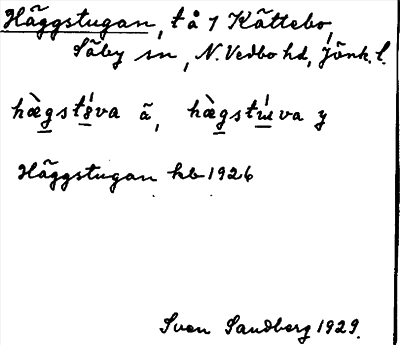 Häggstugan, t å 1 Kättebo,
Säby sn, N. Vedbo hd, Jönk. l.
hæ̀gstú̱va ä, hæ̀gstú̱va y
Häggstugan kb 1926
Sven Sandberg 1929.